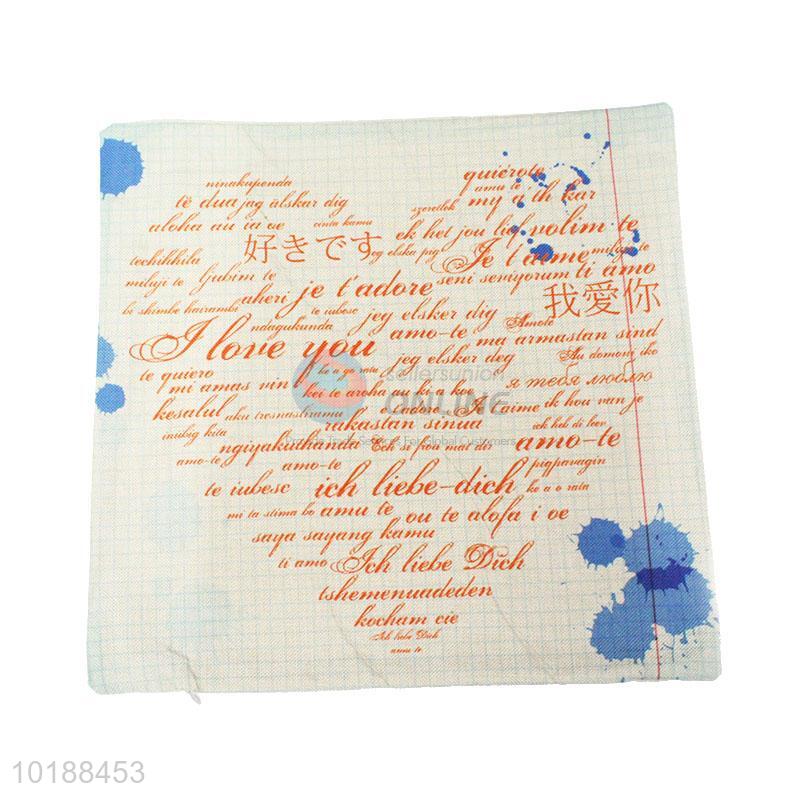 ninakupenda
quiérote
amu te
të dua jag älskar dig
szeretlek my a'th kar
aloha au ia oe
cinta kamu
ek het jou lief volim te
好きです
eg elska þig
Je t'aime
miluje te
techihhila
miluji te ljubim te
seni seviyorum ti amo
aheri je t'adore
我愛你
bi shimbe hairambi
te iubesc jeg elsker dig
Amote
ndagukunda
I love you
amo-te
ma armastan sind
jeg elsker deg
Au domoni iko
te quiero
ke a go rata
mi amas vin
kei te aroha au ki a koe
я тебя люблю
kesalul
aku tresnasliramu
t'adore Je t'aime ik hou van je
rakastan sinua
ich hab di leev
inibig kita
ngiyakuthanda
Ech si froa mat dir
amo-te
amo-te
amo-te
pigpavagin
te iubesc ich liebe-dich
ke a o rata
mi ta stima bo amu te ou te alofa i oe
saya sayang kamu
ti amo Ich liebe Dich
tshemenuadeden
kocham cie
Ich liebe Dich
amu te
sellersunion
ONLINE
Provide Trade Services For Global Customers
10188453